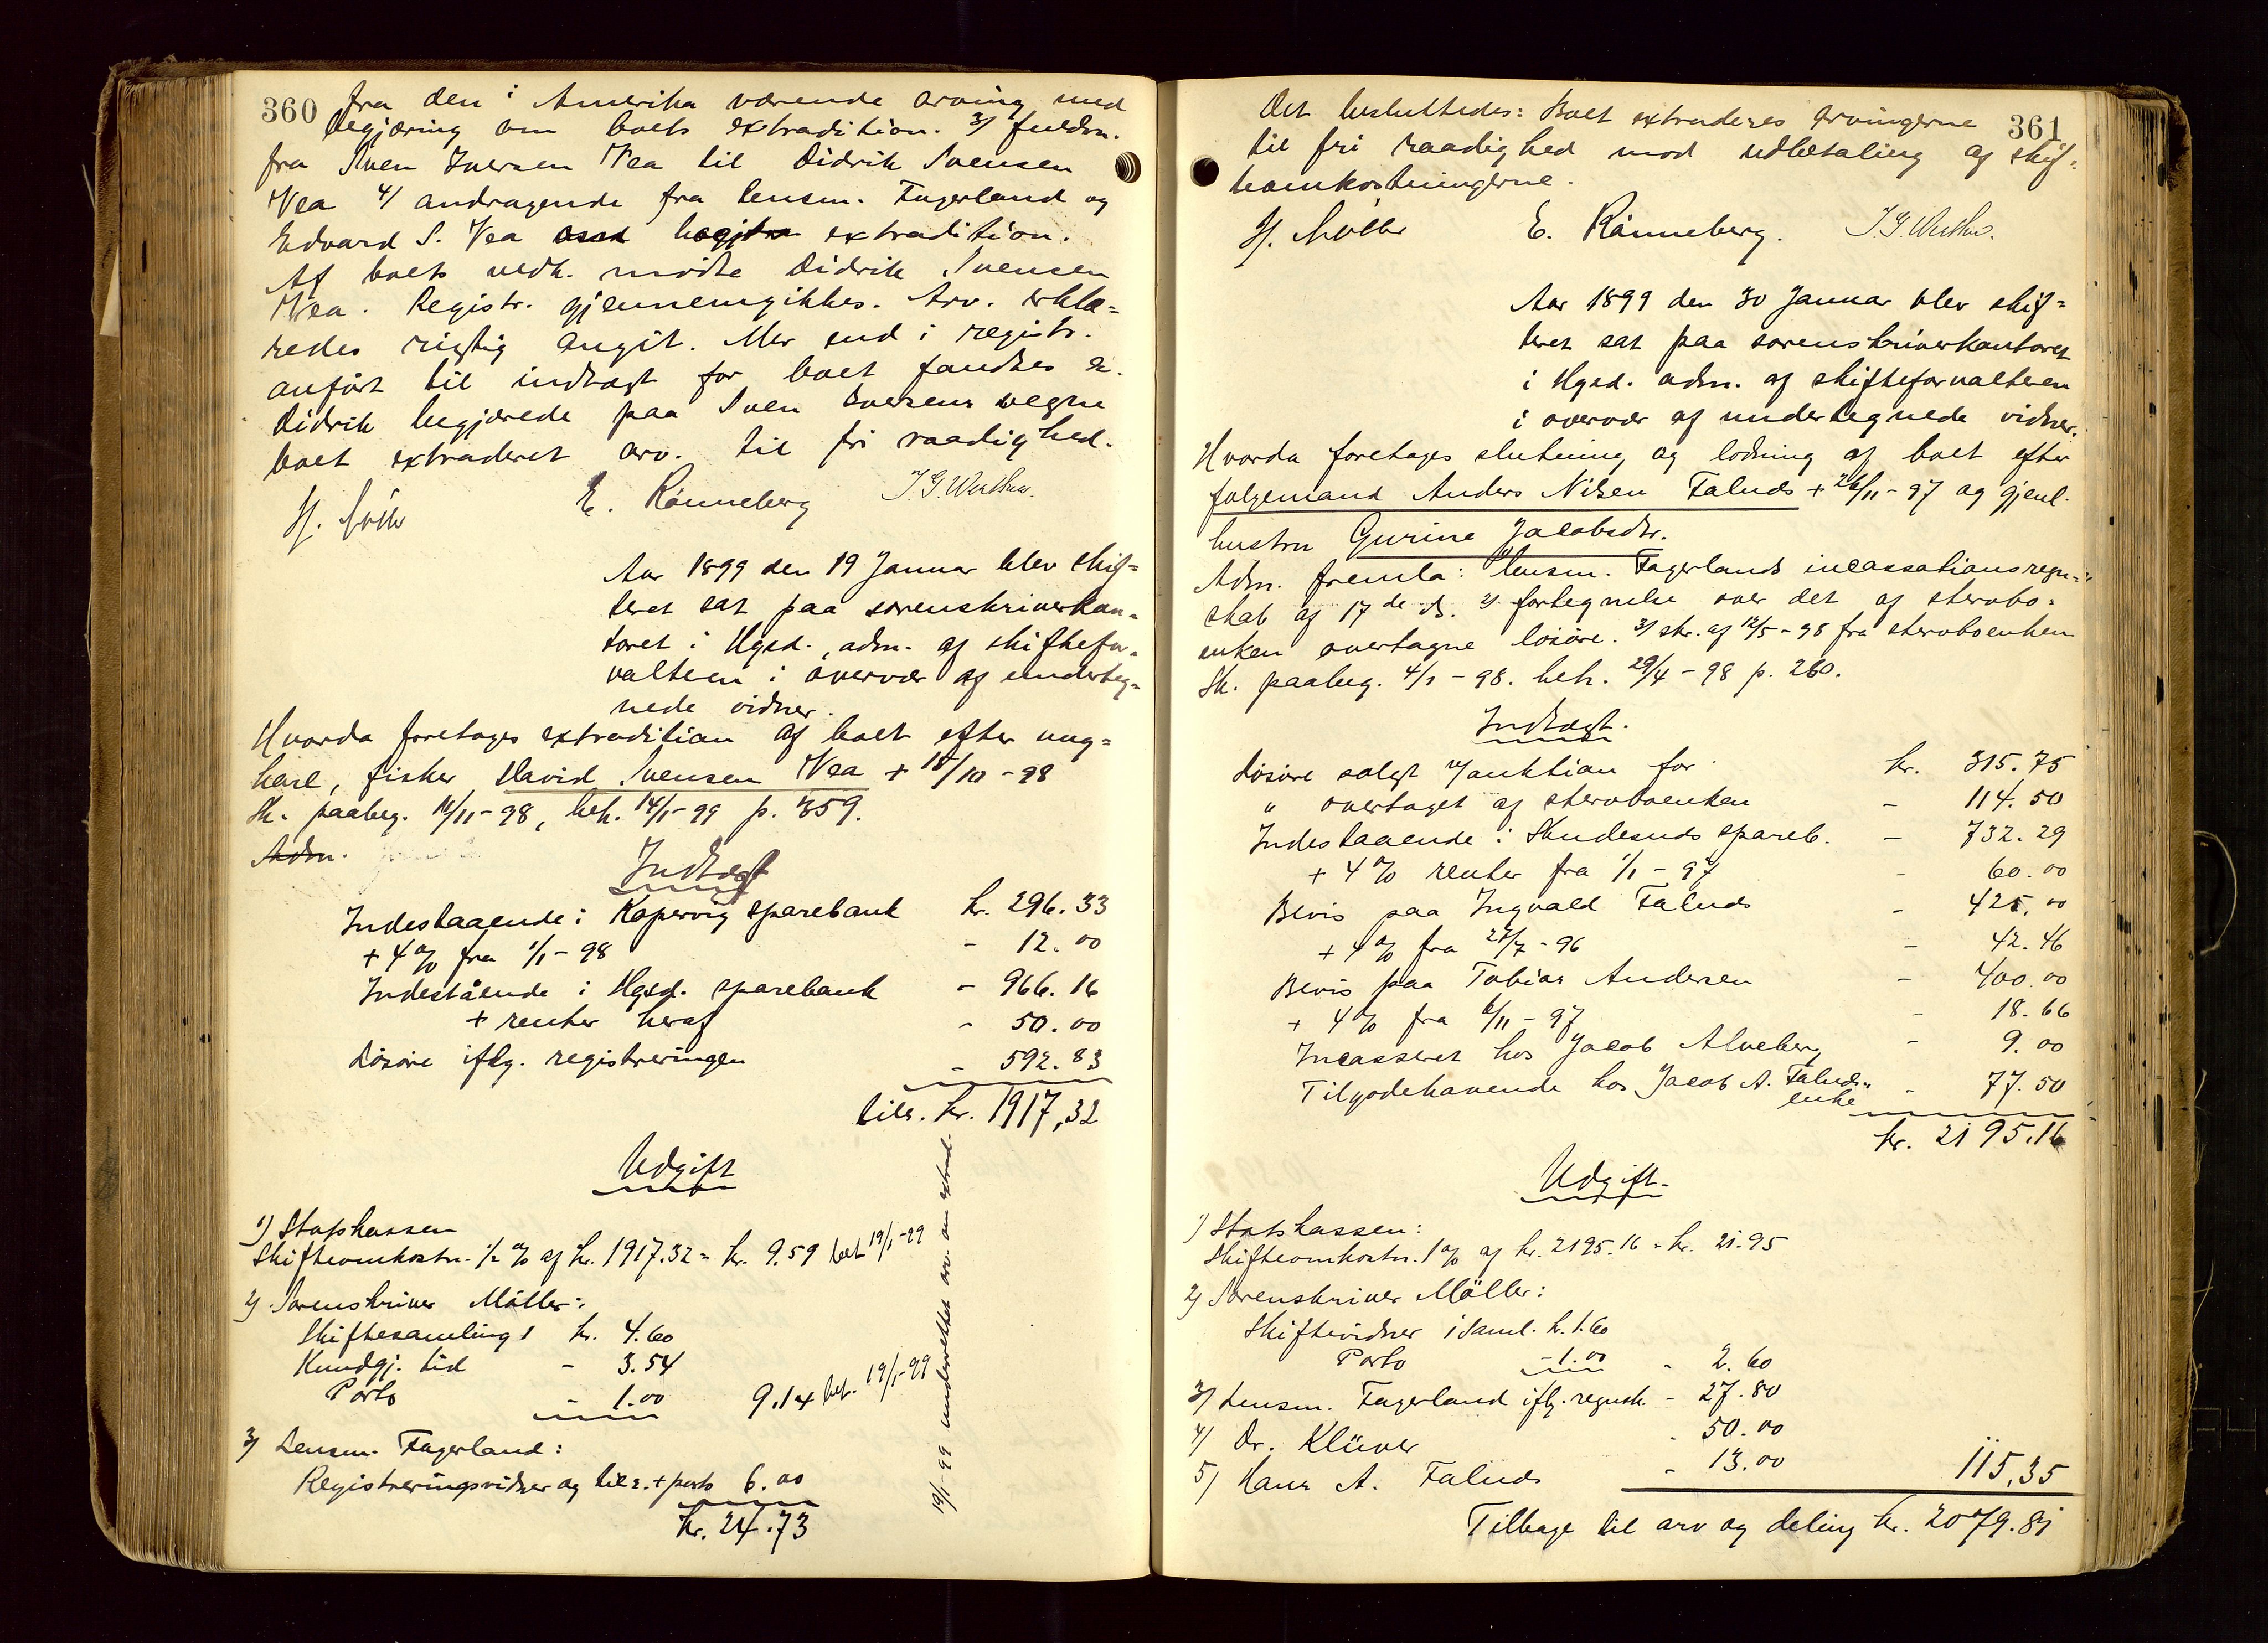 360 fra den i Amerika værende arving med
begjæring om boets extradition. 3/ fuldm.
fra Sven Iversen Vea til Didrik Svensen
Vea 4/ andragende fra lensm. Fagerland og
Edvard S. Vea extradition.
Af boets vedk. mødte Didrik Svensen
Vea. Registr. gjennemgikkes. Arv. erklæ=
redes rigtig angit. Mer end i registr.
anført til indtægt for boet fandtes ei.
Didrik begjærede paa Sven Iversens vegne
boet extraderet arv. til fri raadighed.
H. Møller E. Rønneberg
Aar 1899 den 19 Januar blev skif=
teret sat paa sorenskriverkon=
toret i Hgsd., adm. af skiftefor=
valteren i overvær af underteg=
nede vidner.
Hvorda foretoges extradition af boet efter ung=
karl, fisker David Svensen Vea + 18/10 - 98
Sk. paabeg. 16/11 - 98, beh. 14/1 - 99 p. 359.
Adm.
Indtægt
Indestaaende i Kopervig sparebank kr. 296.33
+ 4 % fra 1/1 - 98 - 12.00
Indestående i Hgsd. sparebank - 966.16
+ renter heraf - 50.00
Løsøre iflg. registreringen - 592.83
tils. kr. 1917,32
Udgift
1) Statskassen
Skifteomkostn. 1/2 % af kr. 1917.32 = kr. 9.59 bet 19/1 - 99
2) Sorenskriver Møller:
Skiftesamling 1 kr. 4.60
Kundgj. tid - 3.54
Porto - 1.00 9.14 bet. 19/1 - 99
3) Lensm. Fagerland:
Registreringsvidner og tils. + porto 6.00
kr. 24.73
19/1 - 99 underrettet arv. om extrad.
Det besluttedes: Boet extraderes arvingerne 361
til fri raadighed mod udbetaling af skif=
teomkostningerne.
H. Møller E. Rønneberg.
Aar 1899 den 30 Januar blev skif=
teret sat paa sorenskriverkontoret
i Hgsd. adm. af skifteforvalteren
i overvær af undertegnede vidner.
Hvorda foretoges slutning og lodning af boet efter
følgemand Anders Nilsen Falnes + 26/11 - 97 og gjenl.
hustru Gurine Jacobsdtr.
Adm. fremla: lensm. Fagerlands incassationsregn=
skab af 17de ds. 2) fortegnelse over det af stervbo=
enken overtagne løsøre. 3) skr. af 12/5 - 98 fra stervboenken
Sk. paabeg. 4/1 - 98. beh. 29/4 - 98 p. 260.
Indtægt.
Løsøre solgt v/auktion for kr. 315.75
" overtaget af stervboenken - 114.50
Indestaaende i Skudesnes spareb. - 732.29
+ 4 % renter fra 1/1 - 97 - 60.00
Bevis paa Ingvald Falnes - 425.00
+ 4 % fra 27/7 - 96 - 42.46
Bevis paa Tobias Andersen - 400.00
+ 4 % fra 6/11 - 97 - 18.66
Incasseret hos Jacob Alveberg - 9.00
Tilgodehavende hos Jacob A. Falnes
enke - 77.50
kr. 2195.16
Udgift.
1) Statskassen:
Skifteomkostn. 1 % af kr. 2195.16 = kr. 21.95
2) Sorenskriver Møller:
Skiftevidner i saml. k. 1.60
Porto - 1.00 - 2.60
3) Lensm. Fagerland iflg. regnsk. - 27.80
4) Dr. Klüver - 50.00
5) Hans A. Falnes - 13.00 115,35
Tilbage til arv og deling kr. 2079.81